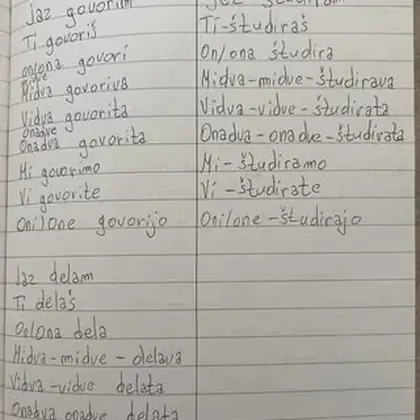 Jaz govorim
Ti govoriš
on/ona govori
midve
Midva govoriva
Vidva govorita
Onadve
Onadva govorita
Mi govorimo
Vi govorite
Oni/One govorijo
Jaz delam
Ti delaš
On/Ona dela
Midva-midve - delava
Vidva-vidve delata
Onadva onadve delata
Ti-študiraš
On/ona študira
Midva-midve-študirava
Vidva-vidve-študirata
Onadva-onadve-študirata
Mi-študiramo
Vi-študirate
Oni/one-študirajo